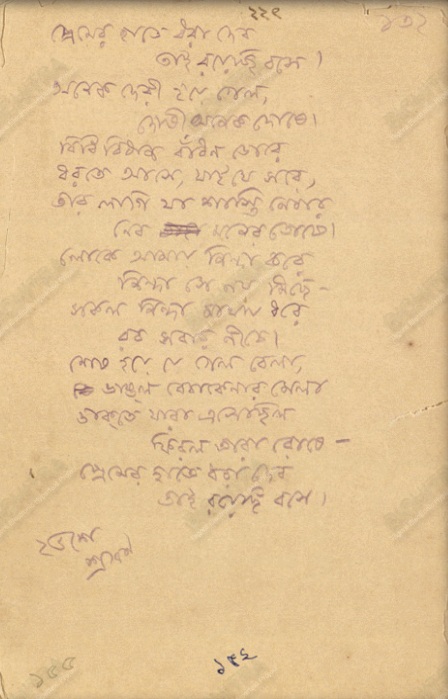 ২২৯
১৩২
প্রেমের হাতে ধরা দেব
তাই রয়েছি বসে।
অনেক দেরী হয়ে গেল,
দোষী অনেক দোষে।
বিধি বিধান বাঁধন ডোরে
ধরতে আসে, যাই যে সরে,
তার লাগি যা শাস্তি নেবার
নেব মনের তোষে।
লোকে আমায় নিন্দা করে
নিন্দা সে নয় মিছে –
সকল নিন্দা মাথায় ধরে
রব সবার নীচে।
শেষ হয়ে যে গেল বেলা,
ভাঙল বেচাকেনার মেলা
ডাকতে যারা এসেছিল
ফিরল তারা রোষে –
প্রেমের হাতে ধরা দেব
তাই রয়েছি বসে।
২৫শে
শ্রাবণ
১৫৫
১৫৬